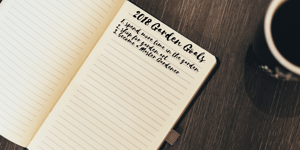 2018 Garden Goals
1. Spend more time in the garden
2. Shop for garden art
3. Become a Master Gardener